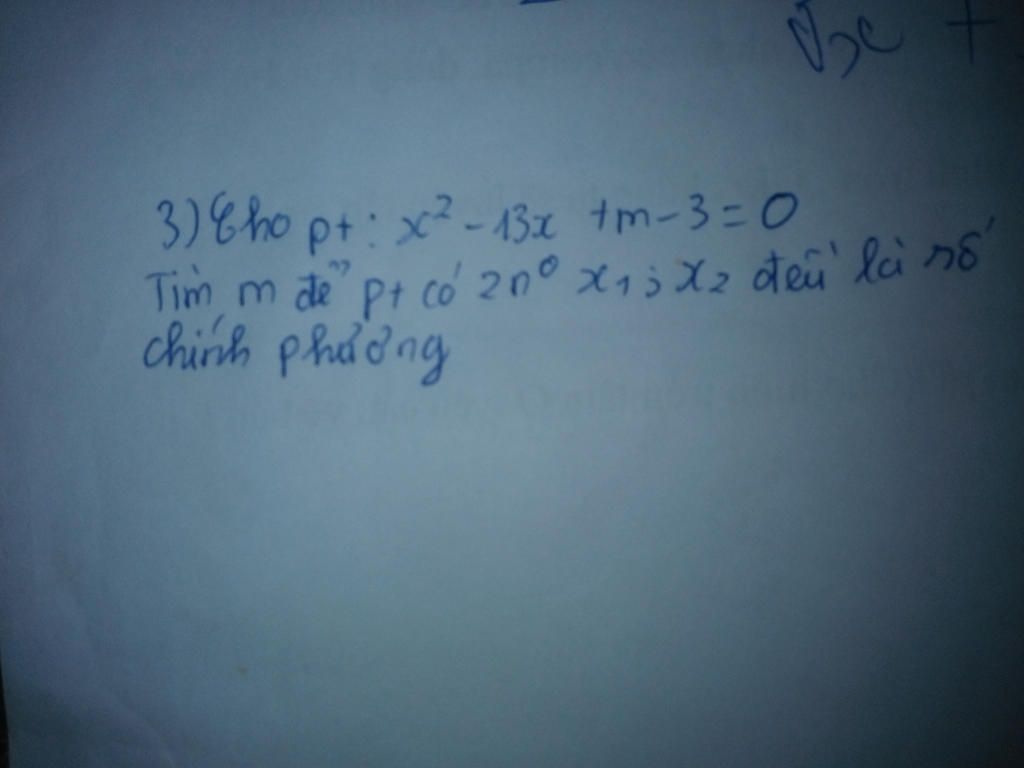 √x +
3) Cho pt: x² - 13x + m - 3 = 0
Tìm m để pt có 2n⁰ x₁; x₂ đều là số
chính phương